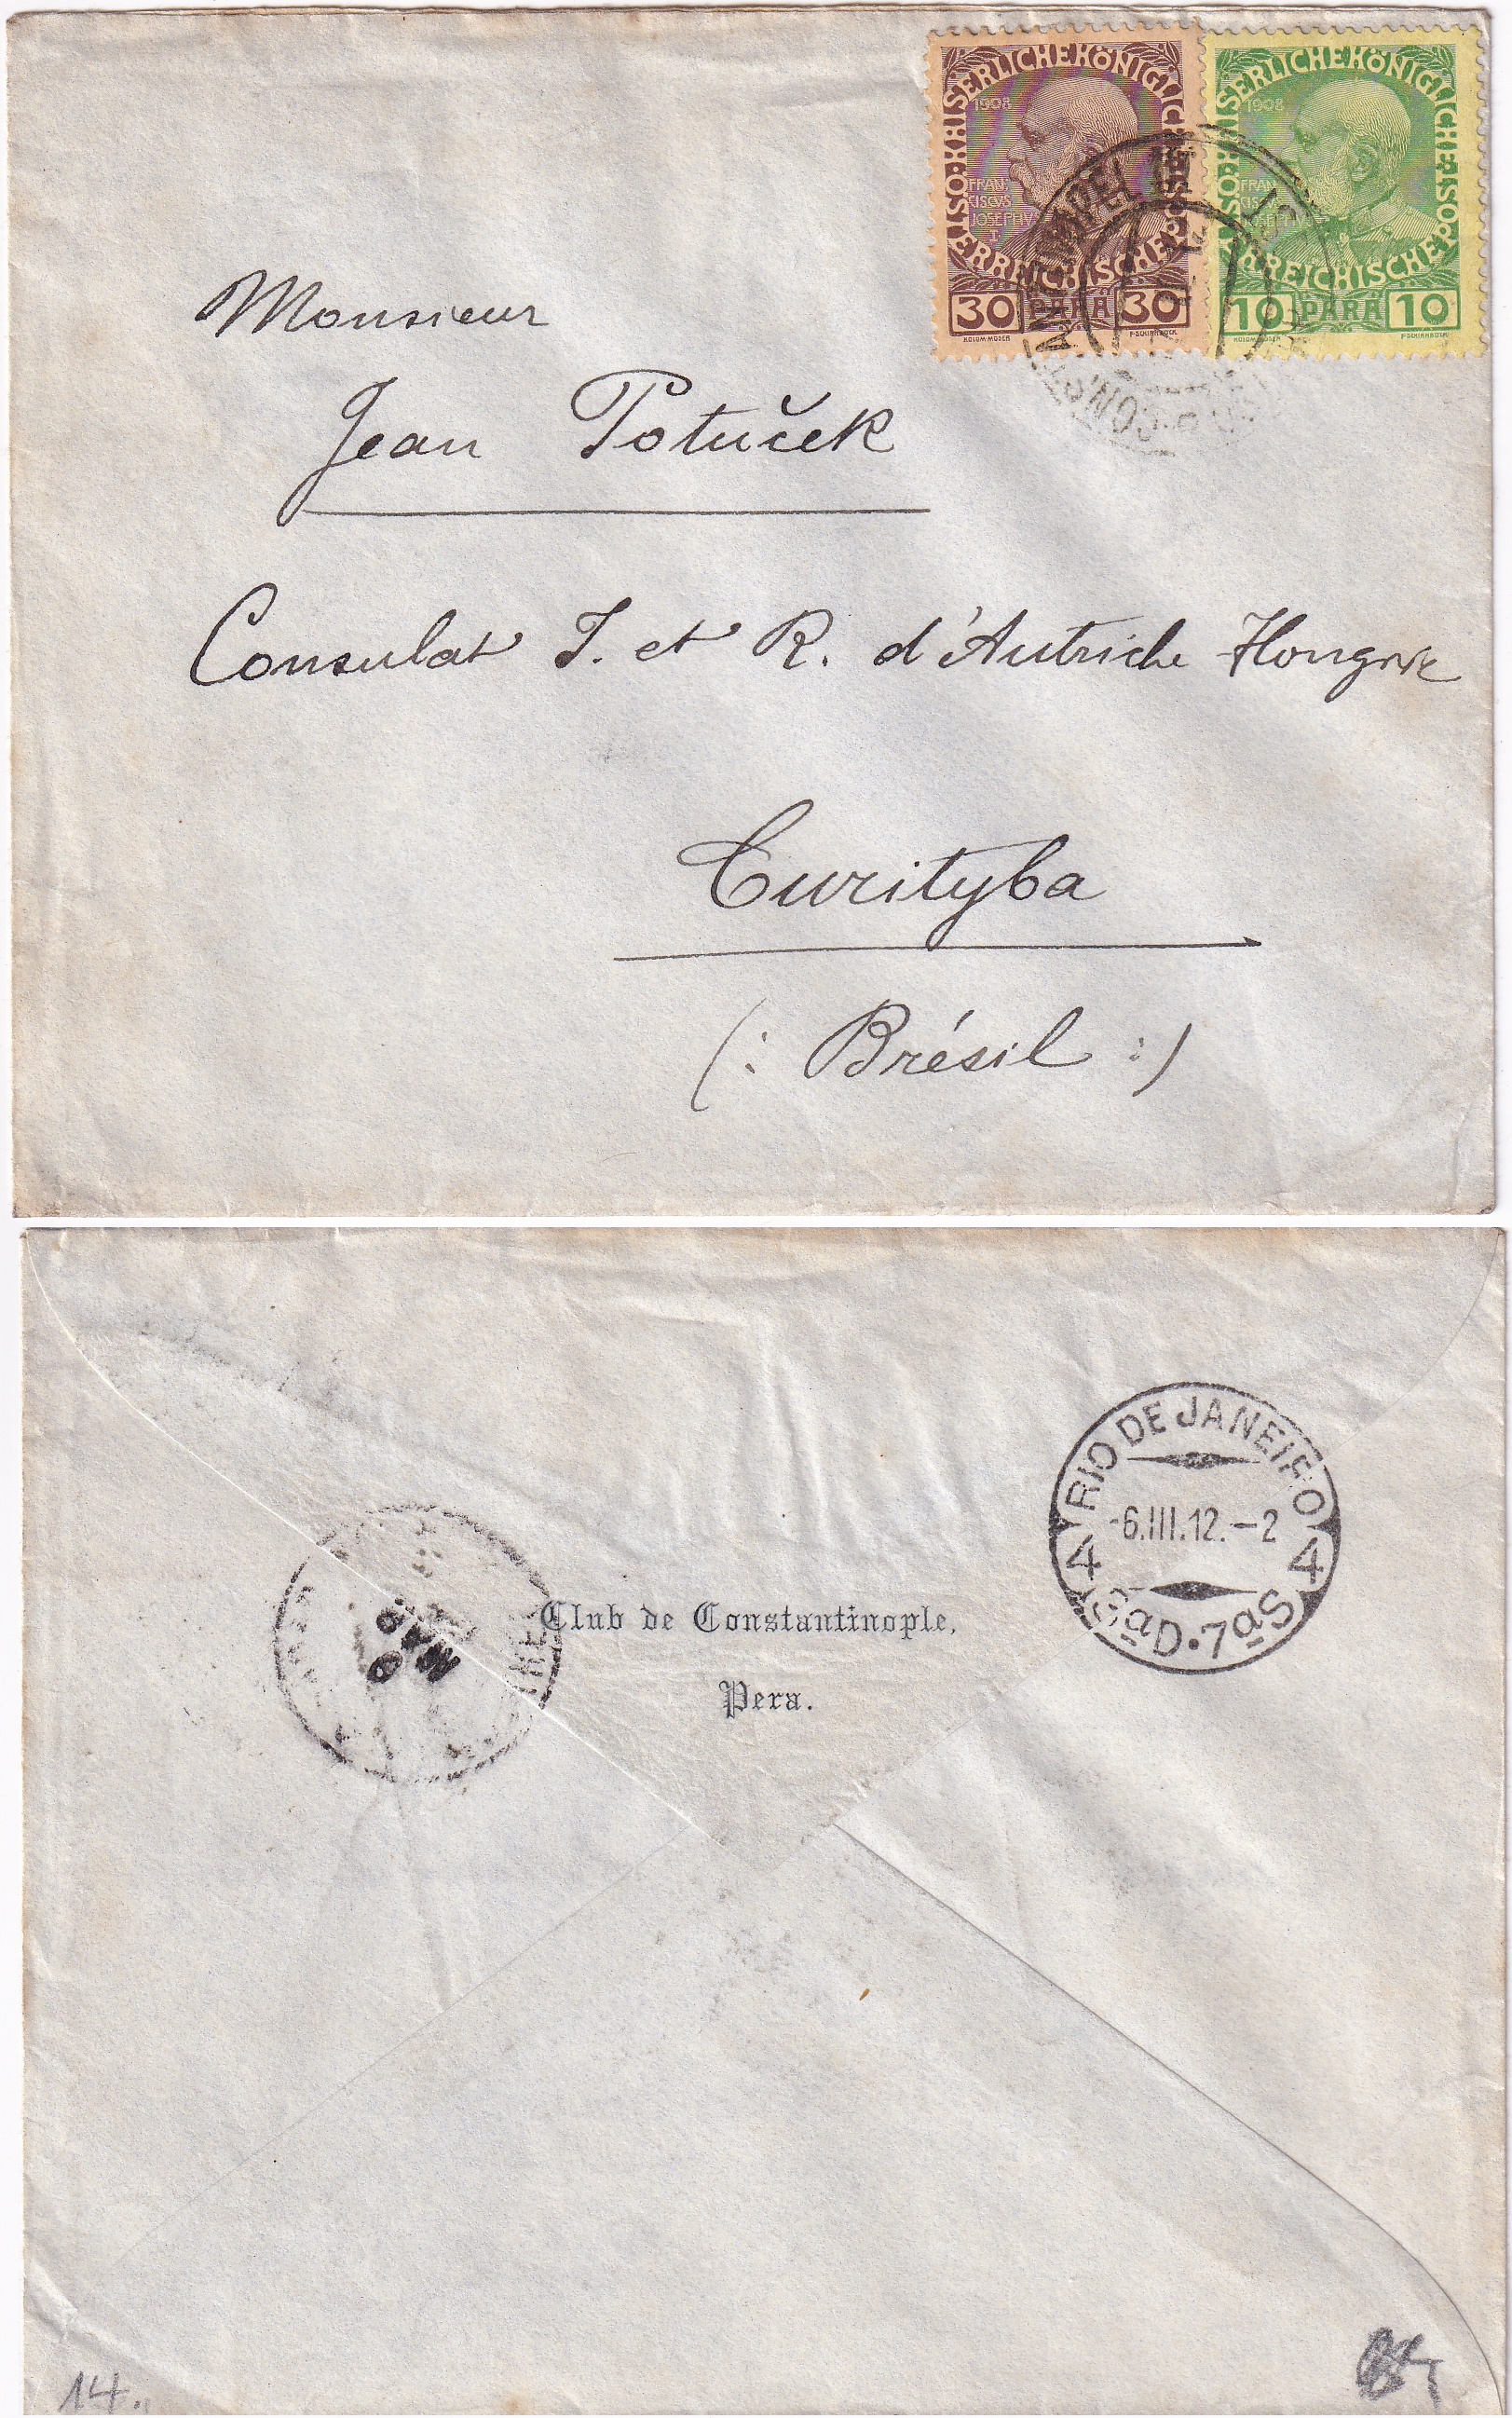 KAISERLICHEKÖNIGLICHE ÖSTERREICHISCHE POST
1908
FRAN
CISCVS
JOSEPHVS
I
30 PARA 30
KOLOM.MOSER
F.SCHIRNBÖCK
KAISERLICHEKÖNIGLICHE ÖSTERREICHISCHE POST
1908
10 PARA 10
KOLOM.MOSER
F.SCHIRNBÖCK
Monsieur
Jean Potuček
Consulat I. et R. d'Autriche Hongrie
Curityba
(: Brésil :)
RIO DE JANEIRO
-6.III.12.-2
4 4
Club de Constantinople,
Pera.
14.